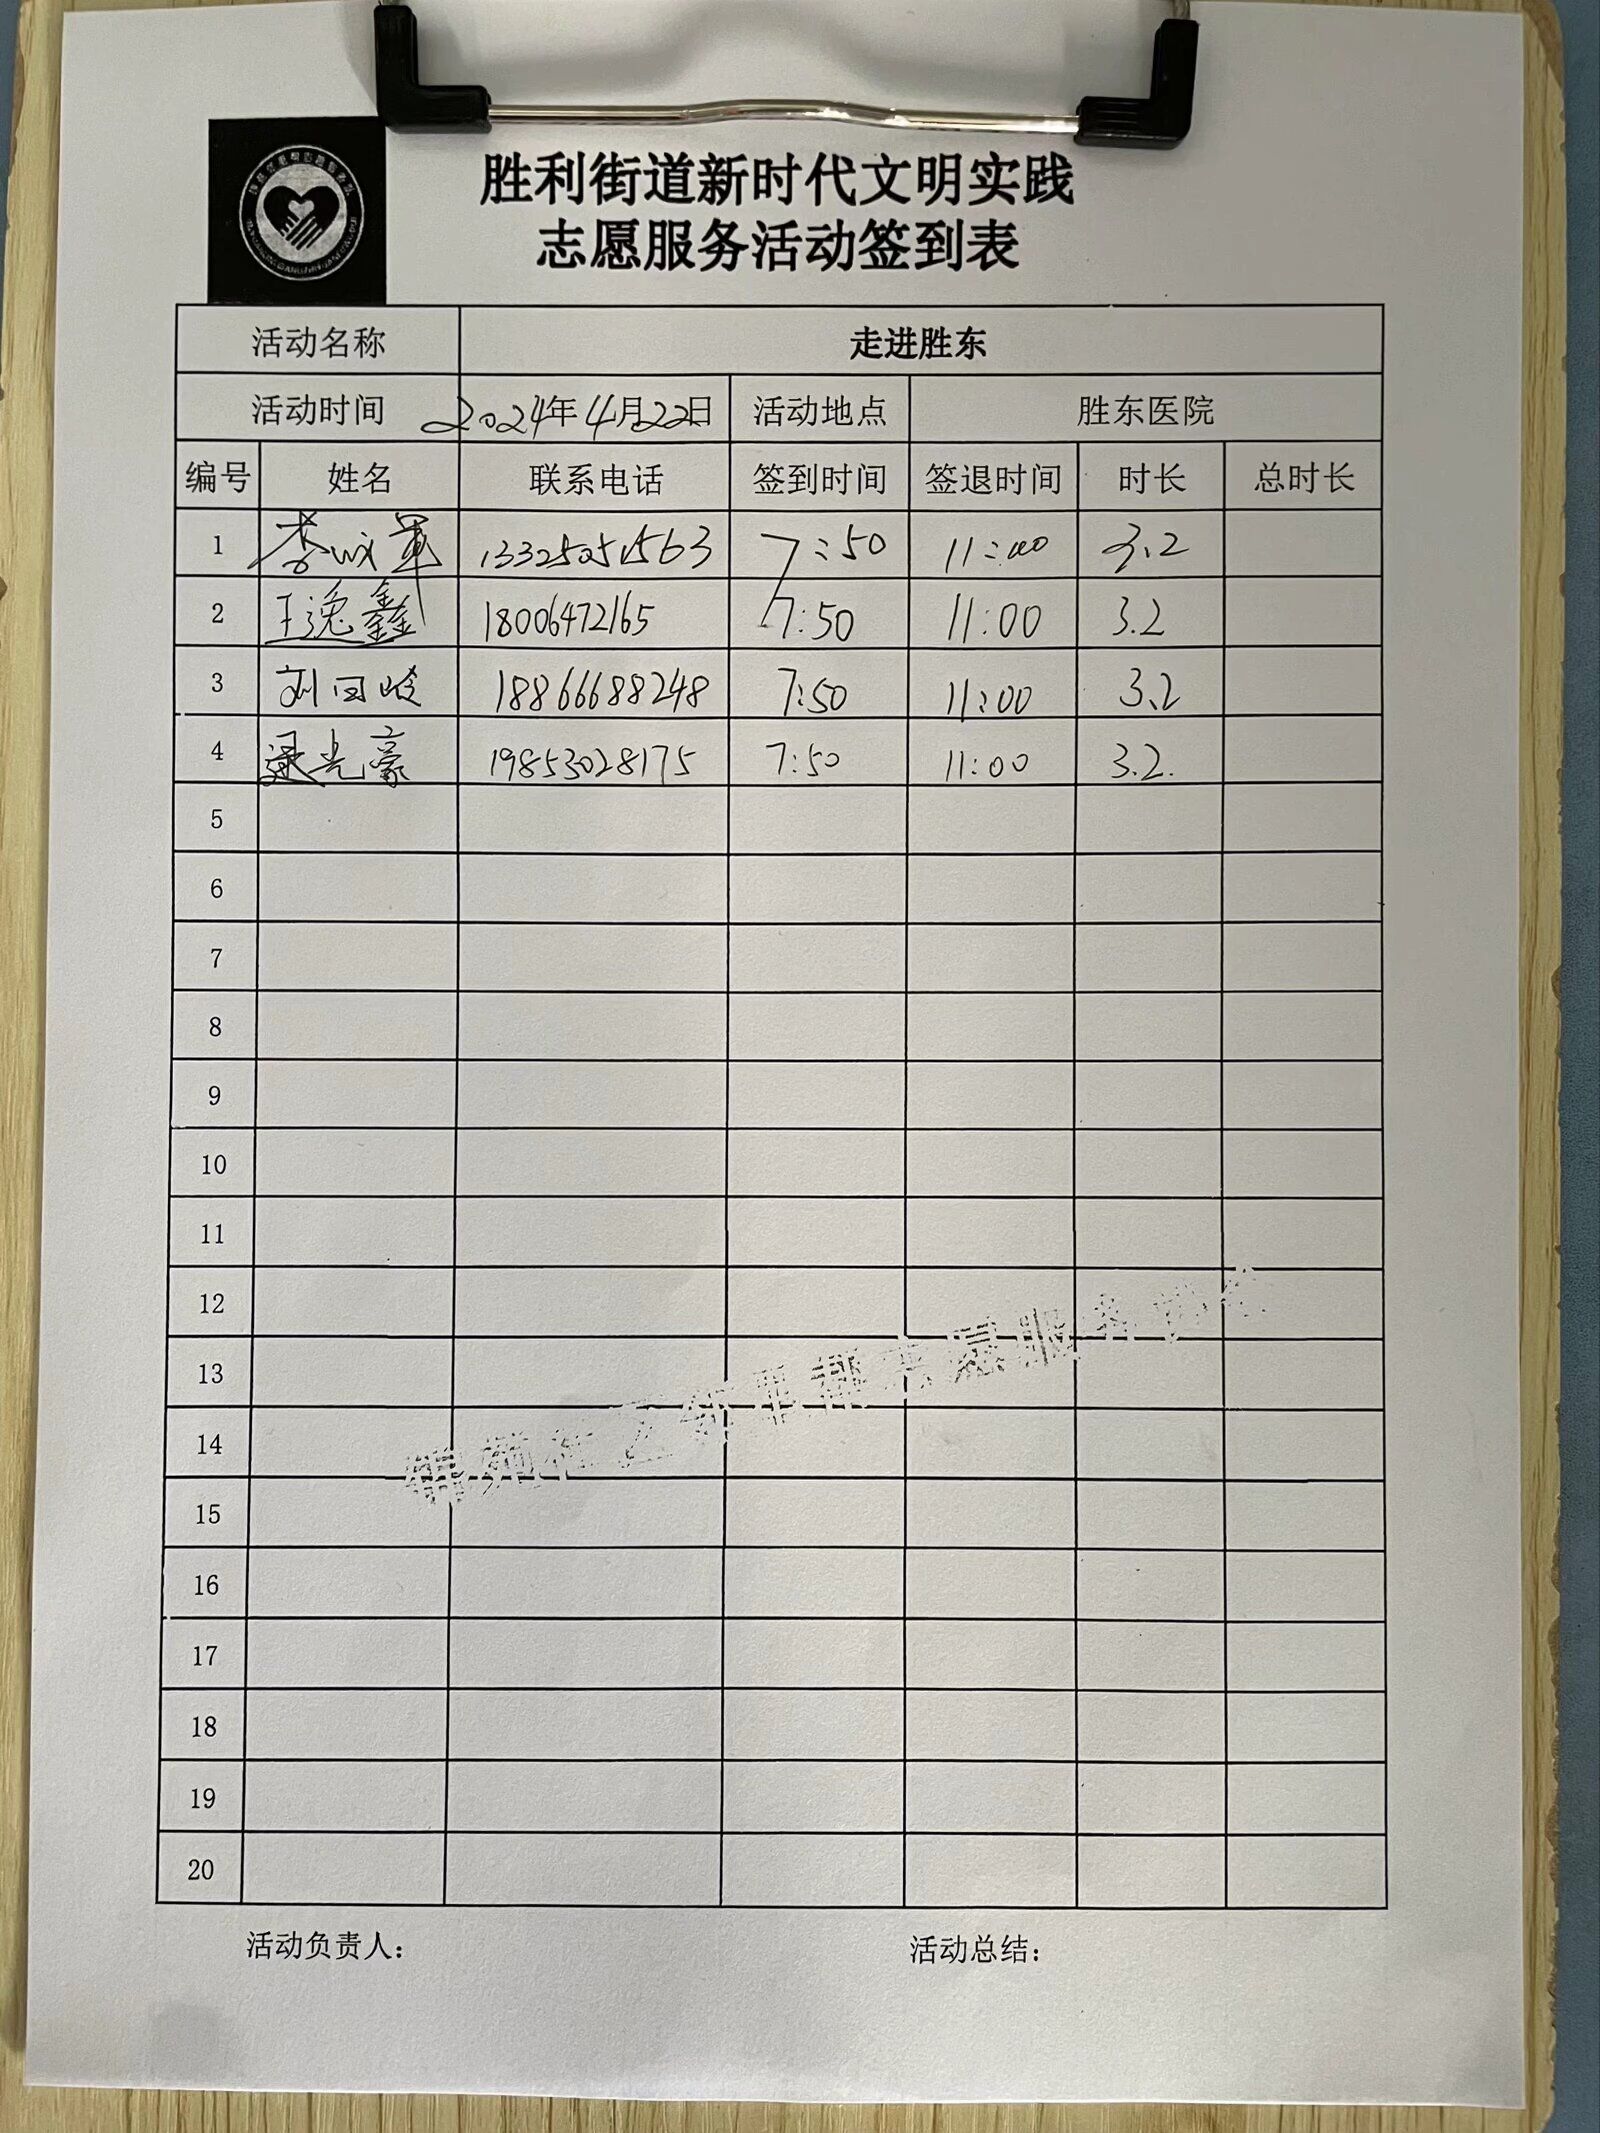 胜利街道新时代文明实践
志愿服务活动签到表
活动名称 走进胜东
活动时间 2024年4月22日 活动地点 胜东医院
编号 姓名 联系电话 签到时间 签退时间 时长 总时长
1 李 军 13325051563 7:50 11:00 3.2
2 王逸鑫 18006472165 7:50 11:00 3.2
3 刘 18866688248 7:50 11:00 3.2
4 梁光豪 19853028175 7:50 11:00 3.2.
5
6
7
8
9
10
11
12
13
14
15
16
17
18
19
20
活动负责人： 活动总结：